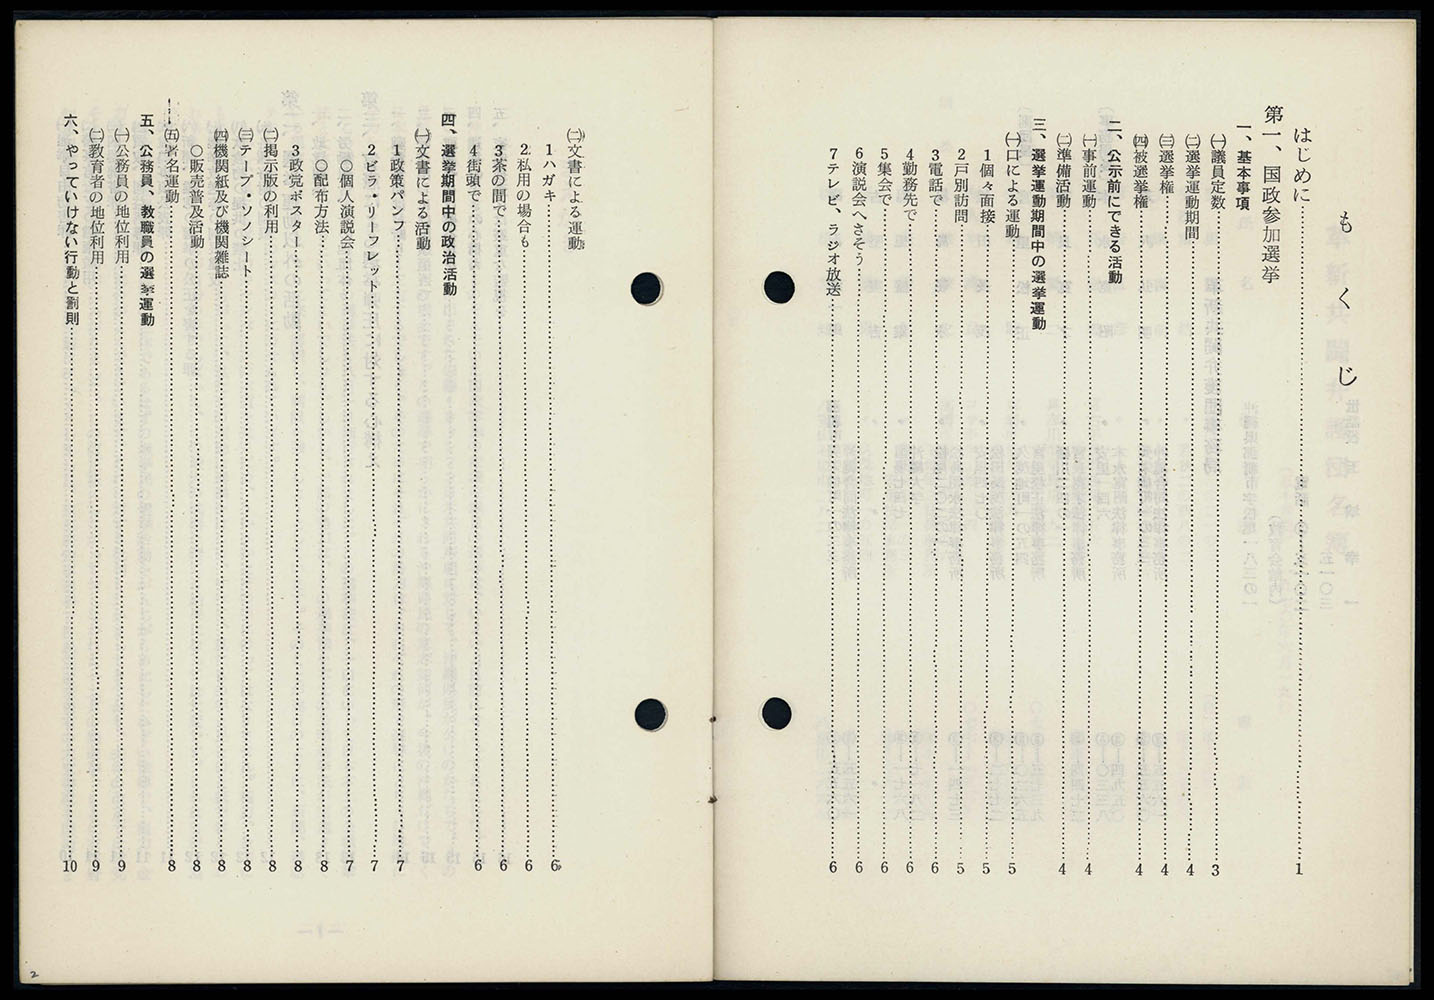 もくじ
はじめに……1
第一、国政参加選挙
一、基本事項
㈠議員定数……3
㈡選挙運動期間……4
㈢選挙権……4
㈣被選挙権……4
二、公示前にできる活動
㈠事前運動……4
㈡準備活動……4
三、選挙運動期間中の選挙運動
㈠口による運動……5
1個々面接……5
2戸別訪問……5
3電話で……6
4勤務先で……6
5集会で……6
6演説会へさそう……6
7テレビ、ラジオ放送……6
㈡文書による運動
1ハガキ……6
2私用の場合も……6
3茶の間で……6
4街頭で……6
四、選挙期間中の政治活動
㈠文書による活動
1政策パンフ……7
2ビラ・リーフレット……7
○個人演説会……7
○配布方法……8
3政党ポスター……8
㈡掲示版の利用……8
㈢テープ・ソノシート……8
㈣機関紙及び機関雑誌……8
○販売普及活動……8
㈤署名運動……8
五、公務員、教職員の選挙運動
㈠公務員の地位利用……9
㈡教育者の地位利用……9
六、やっていけない行動と罰則……10
2